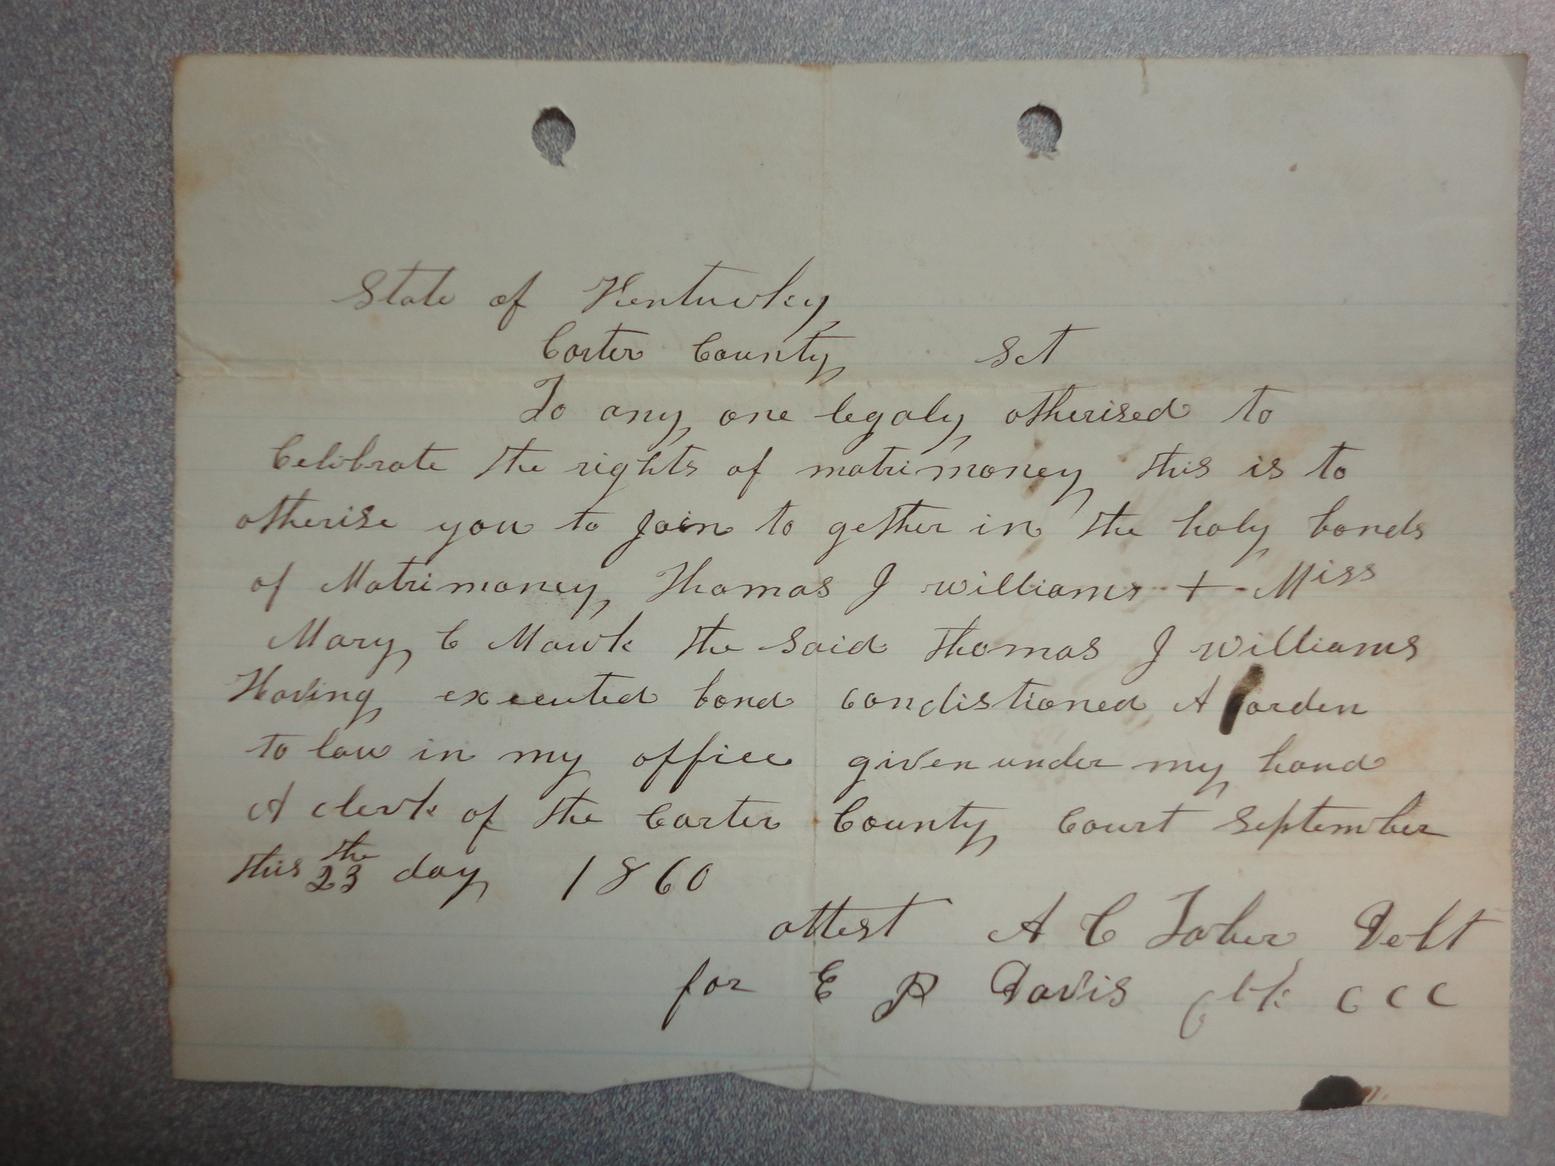 State of Kentucky
Carter County Sct
To any one legaly otherised to
Celibrate the rights of matrimoney this is to
otherise you to join to gether in the holy bonds
of Matrimoney Thomas J williams + Miss
Mary C Mawk the said Thomas J williams
Having executed bond condistioned A orden
to law in my office given under my hand
A clerk of the Carter County Court September
this 23 the day 1860
attest A C
for E Davis Clk C C C